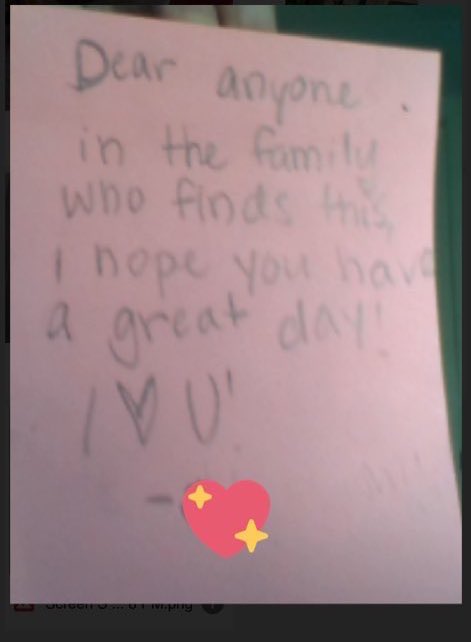 Dear anyone
in the family
who finds this,
I hope you have
a great day!
I ♥ U!
-